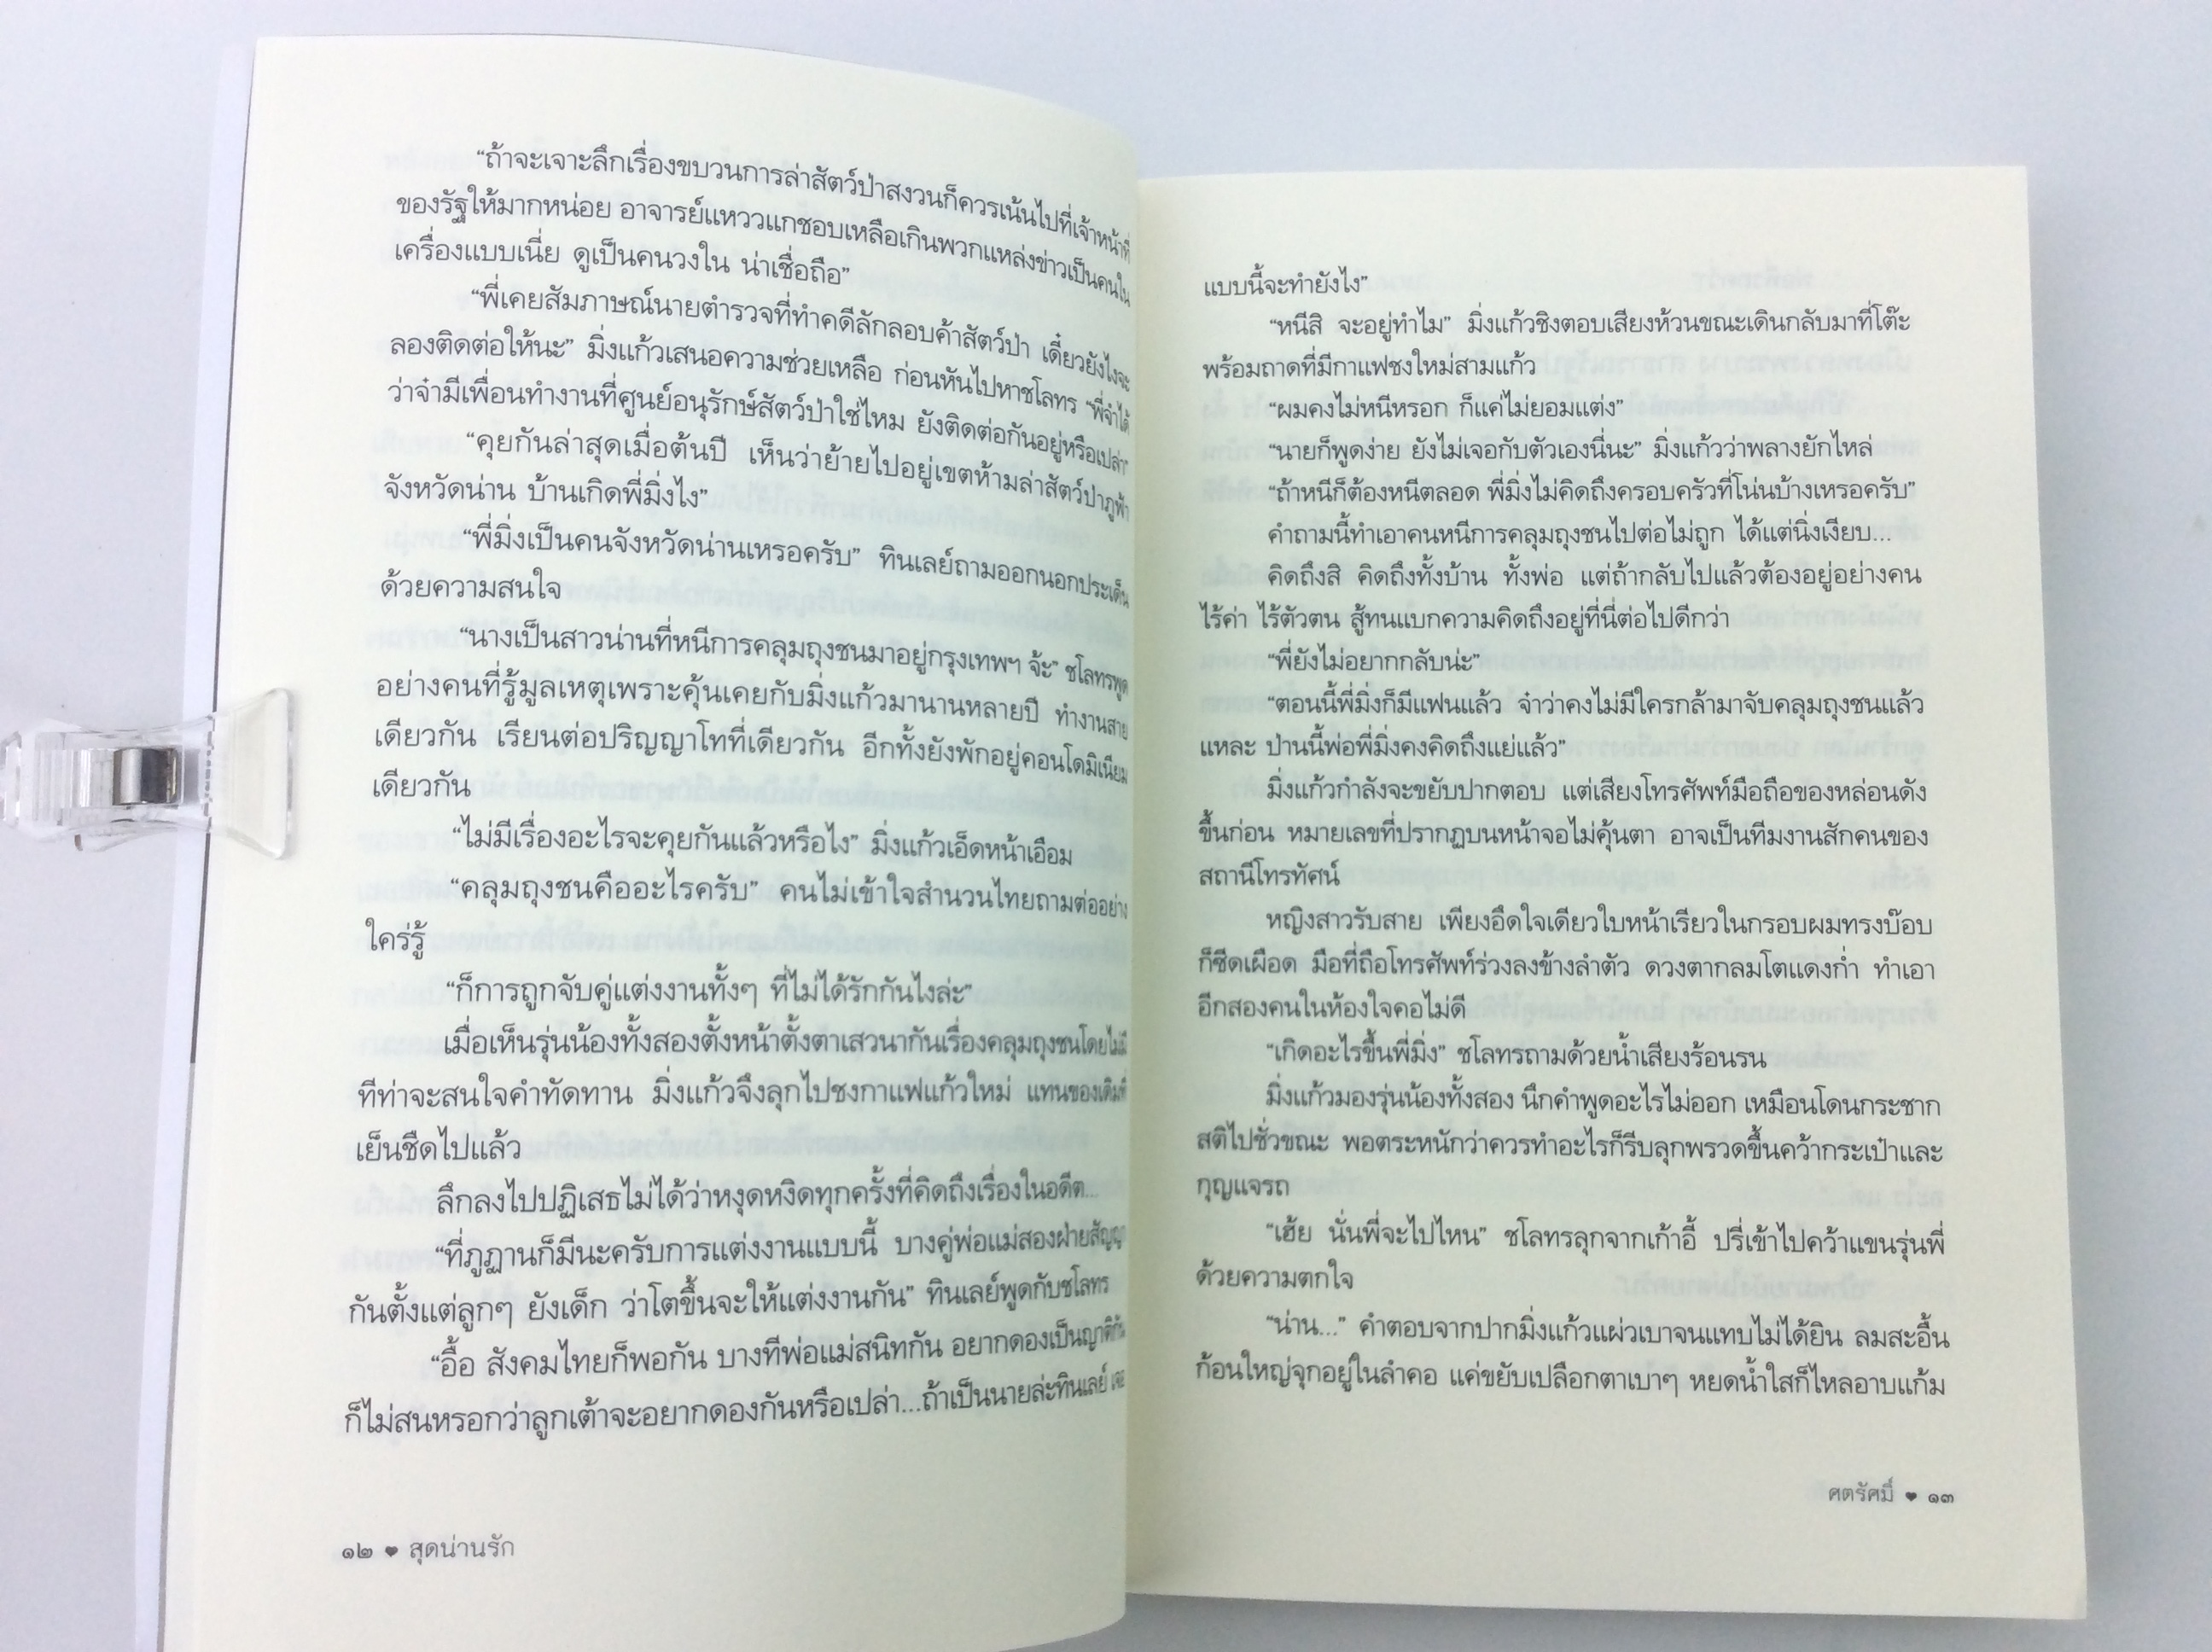 “ถ้าจะเจาะลึกเรื่องขบวนการล่าสัตว์ป่าสงวนก็ควรเน้นไปที่เจ้าหน้าที่
ของรัฐให้มากหน่อย อาจารย์แหววแกชอบเหลือเกินพวกแหล่งข่าวเป็นคนใน
เครื่องแบบเนี่ย ดูเป็นคนวงใน น่าเชื่อถือ”
“พี่เคยสัมภาษณ์นายตำรวจที่ทำคดีลักลอบค้าสัตว์ป่า เดี๋ยวยังไงจะ
ลองติดต่อให้นะ” มิ่งแก้วเสนอความช่วยเหลือ ก่อนหันไปหาชโลทร “พี่จำได้
ว่าจ๋ามีเพื่อนทำงานที่ศูนย์อนุรักษ์สัตว์ป่าใช่ไหม ยังติดต่อกันอยู่หรือเปล่า”
“คุยกันล่าสุดเมื่อต้นปี เห็นว่าย้ายไปอยู่เขตห้ามล่าสัตว์ป่าภูฟ้า
จังหวัดน่าน บ้านเกิดพี่มิ่งไง”
“พี่มิ่งเป็นคนจังหวัดน่านเหรอครับ” ทินเลย์ถามออกนอกประเด็น
ด้วยความสนใจ
“นางเป็นสาวน่านที่หนีการคลุมถุงชนมาอยู่กรุงเทพฯ จ้ะ” ชโลทรพูด
อย่างคนที่รู้มูลเหตุเพราะคุ้นเคยกับมิ่งแก้วมานานหลายปี ทำงานสาย
เดียวกัน เรียนต่อปริญญาโทที่เดียวกัน อีกทั้งยังพักอยู่คอนโดมิเนียม
เดียวกัน
“ไม่มีเรื่องอะไรจะคุยกันแล้วหรือไง” มิ่งแก้วเอ็ดหน้าเอือม
“คลุมถุงชนคืออะไรครับ” คนไม่เข้าใจสำนวนไทยถามต่ออย่าง
ใคร่รู้
“ก็การถูกจับคู่แต่งงานทั้งๆ ที่ไม่ได้รักกันไงล่ะ”
เมื่อเห็นรุ่นน้องทั้งสองตั้งหน้าตั้งตาเสวนากันเรื่องคลุมถุงชนโดยไม่มี
ทีท่าจะสนใจคำทัดทาน มิ่งแก้วจึงลุกไปชงกาแฟแก้วใหม่ แทนของเดิมที่
เย็นชืดไปแล้ว
ลึกลงไปปฏิเสธไม่ได้ว่าหงุดหงิดทุกครั้งที่คิดถึงเรื่องในอดีต...
“ที่ภูฏานก็มีนะครับการแต่งงานแบบนี้ บางคู่พ่อแม่สองฝ่ายสัญญา
กันตั้งแต่ลูกๆ ยังเด็ก ว่าโตขึ้นจะให้แต่งงานกัน” ทินเลย์พูดกับชโลทร
“อื้อ สังคมไทยก็พอกัน บางทีพ่อแม่สนิทกัน อยากดองเป็นญาติกัน
ก็ไม่สนหรอกว่าลูกเต้าจะอยากดองกันหรือเปล่า...ถ้าเป็นนายล่ะทินเลย์ เจอ
๑๒ ❤ สุดน่านรัก
แบบนี้จะทำยังไง”
“หนีสิ จะอยู่ทำไม” มิ่งแก้วชิงตอบเสียงห้วนขณะเดินกลับมาที่โต๊ะ
พร้อมถาดที่มีกาแฟชงใหม่สามแก้ว
“ผมคงไม่หนีหรอก ก็แค่ไม่ยอมแต่ง”
“นายก็พูดง่าย ยังไม่เจอกับตัวเองนี่นะ” มิ่งแก้วว่าพลางยักไหล่
“ถ้าหนีก็ต้องหนีตลอด พี่มิ่งไม่คิดถึงครอบครัวที่โน่นบ้างเหรอครับ”
คำถามนี้ทำเอาคนหนีการคลุมถุงชนไปต่อไม่ถูก ได้แต่นิ่งเงียบ...
คิดถึงสิ คิดถึงทั้งบ้าน ทั้งพ่อ แต่ถ้ากลับไปแล้วต้องอยู่อย่างคน
ไร้ค่า ไร้ตัวตน สู้ทนแบกความคิดถึงอยู่ที่นี่ต่อไปดีกว่า
“พี่ยังไม่อยากกลับน่ะ”
“ตอนนี้พี่มิ่งก็มีแฟนแล้ว จ๋าว่าคงไม่มีใครกล้ามาจับคลุมถุงชนแล้ว
แหละ ป่านนี้พ่อพี่มิ่งคงคิดถึงแย่แล้ว”
มิ่งแก้วกำลังจะขยับปากตอบ แต่เสียงโทรศัพท์มือถือของหล่อนดัง
ขึ้นก่อน หมายเลขที่ปรากฏบนหน้าจอไม่คุ้นตา อาจเป็นทีมงานสักคนของ
สถานีโทรทัศน์
หญิงสาวรับสาย เพียงอึดใจเดียวใบหน้าเรียวในกรอบผมทรงบ๊อบ
ก็ซีดเผือด มือที่ถือโทรศัพท์ร่วงลงข้างลำตัว ดวงตากลมโตแดงก่ำ ทำเอา
อีกสองคนในห้องใจคอไม่ดี
“เกิดอะไรขึ้นพี่มิ่ง” ชโลทรถามด้วยน้ำเสียงร้อนรน
มิ่งแก้วมองรุ่นน้องทั้งสอง นึกคำพูดอะไรไม่ออก เหมือนโดนกระชาก
สติไปชั่วขณะ พอตระหนักว่าควรทำอะไรก็รีบลุกพรวดขึ้นคว้ากระเป๋าและ
กุญแจรถ
“เฮ้ย นั่นพี่จะไปไหน” ชโลทรลุกจากเก้าอี้ ปรี่เข้าไปคว้าแขนรุ่นพี่
ด้วยความตกใจ
“น่าน...” คำตอบจากปากมิ่งแก้วแผ่วเบาจนแทบไม่ได้ยิน ลมสะอื้น
ก้อนใหญ่จุกอยู่ในลำคอ แค่ขยับเปลือกตาเบาๆ หยดน้ำใสก็ไหลอาบแก้ม
ศตรัศมิ์ ❤ ๑๓